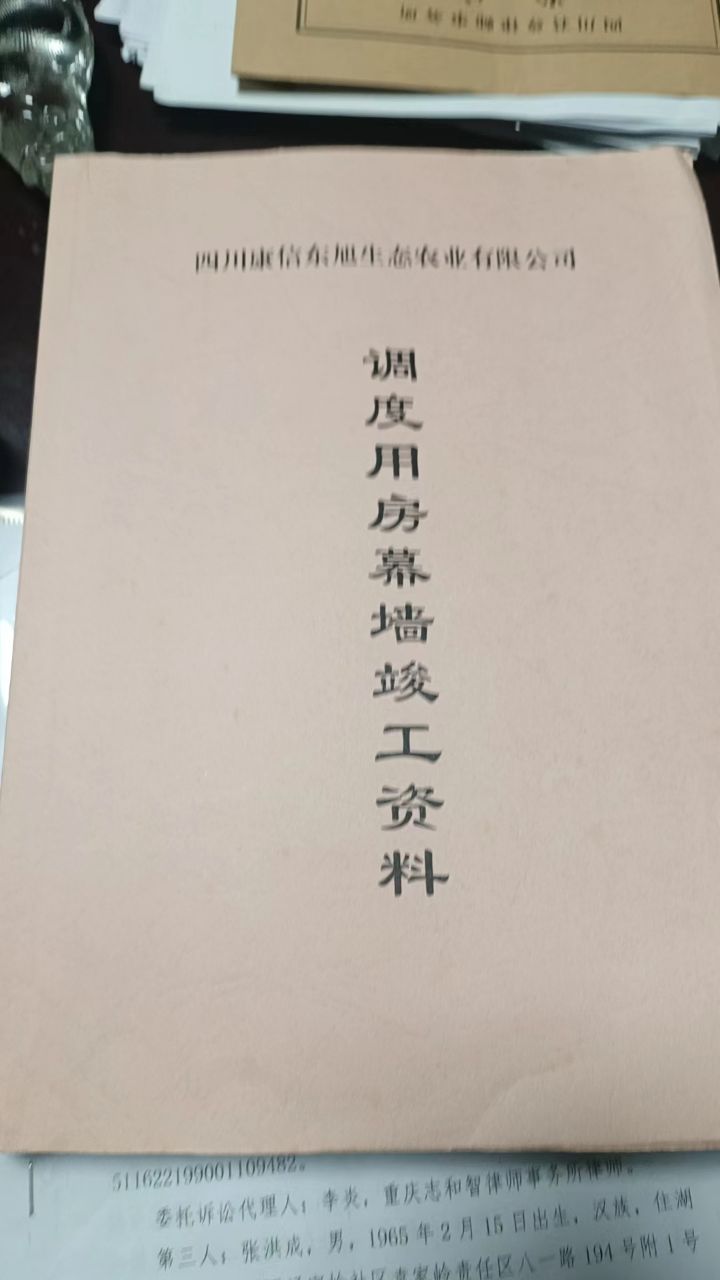 四川康信东旭生态农业有限公司
调度用房幕墙竣工资料
511622199001109482。
委托诉讼代理人：李炎，重庆志和智律师事务所律师。
第三人：张洪成，男，1965年2月15日出生，汉族，住湖
社区袁家岭责任区八一路194号附1号